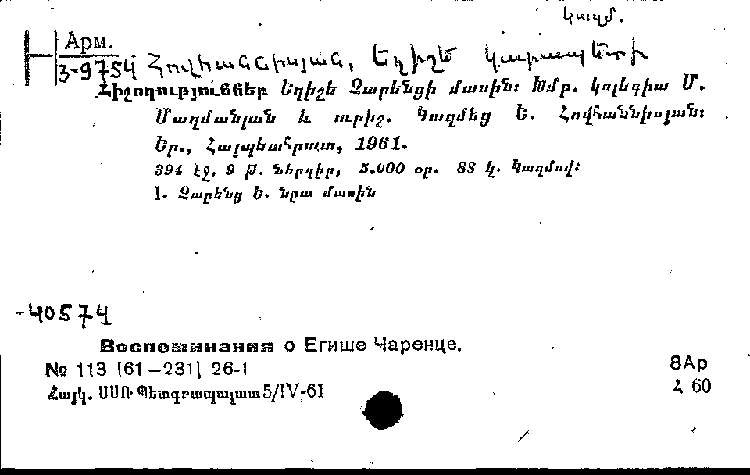 կազմ.
Арм.
3-9754 Հովհաննիսյան, Եղիշե Կարապետի
Հիշողություններ Եղիշե Չարենցի մասին: Խմբ. կոլեգիա Մ.
Մազմանյան և ուրիշ. Կազմեց Ե. Հովհաննիսյան:
Եր., Հայպետհրատ, 1961.
394 էջ, 9 թ. ներդիր, 5.000 օր. 88 կ. Կազմով:
1. Չարենց Ե. նրա մասին
-40574
Воспоминания о Егише Чаренце.
№ 113 [61—231] 26-1
8Ар
Հայկ. ՍՍՌ Պետգրապալատ 5/IV-61
Հ 60